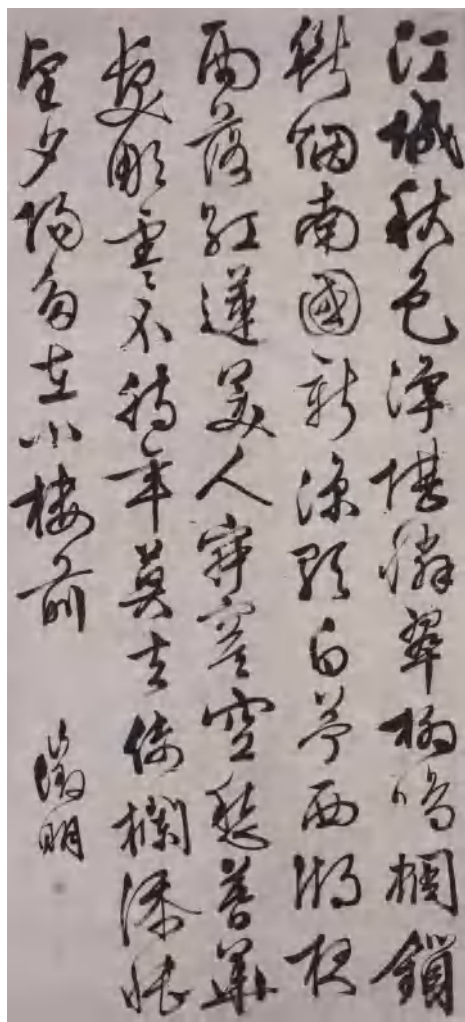 江城秋色淨堪憐翠柳鳴蜩鎖
斷烟南國新涼歌白苧西湖夜
雨落紅蓮美人寂寞空愁暮華
髮彫零不待年莫去倚欄添悵
望夕陽多在小樓前 徵明